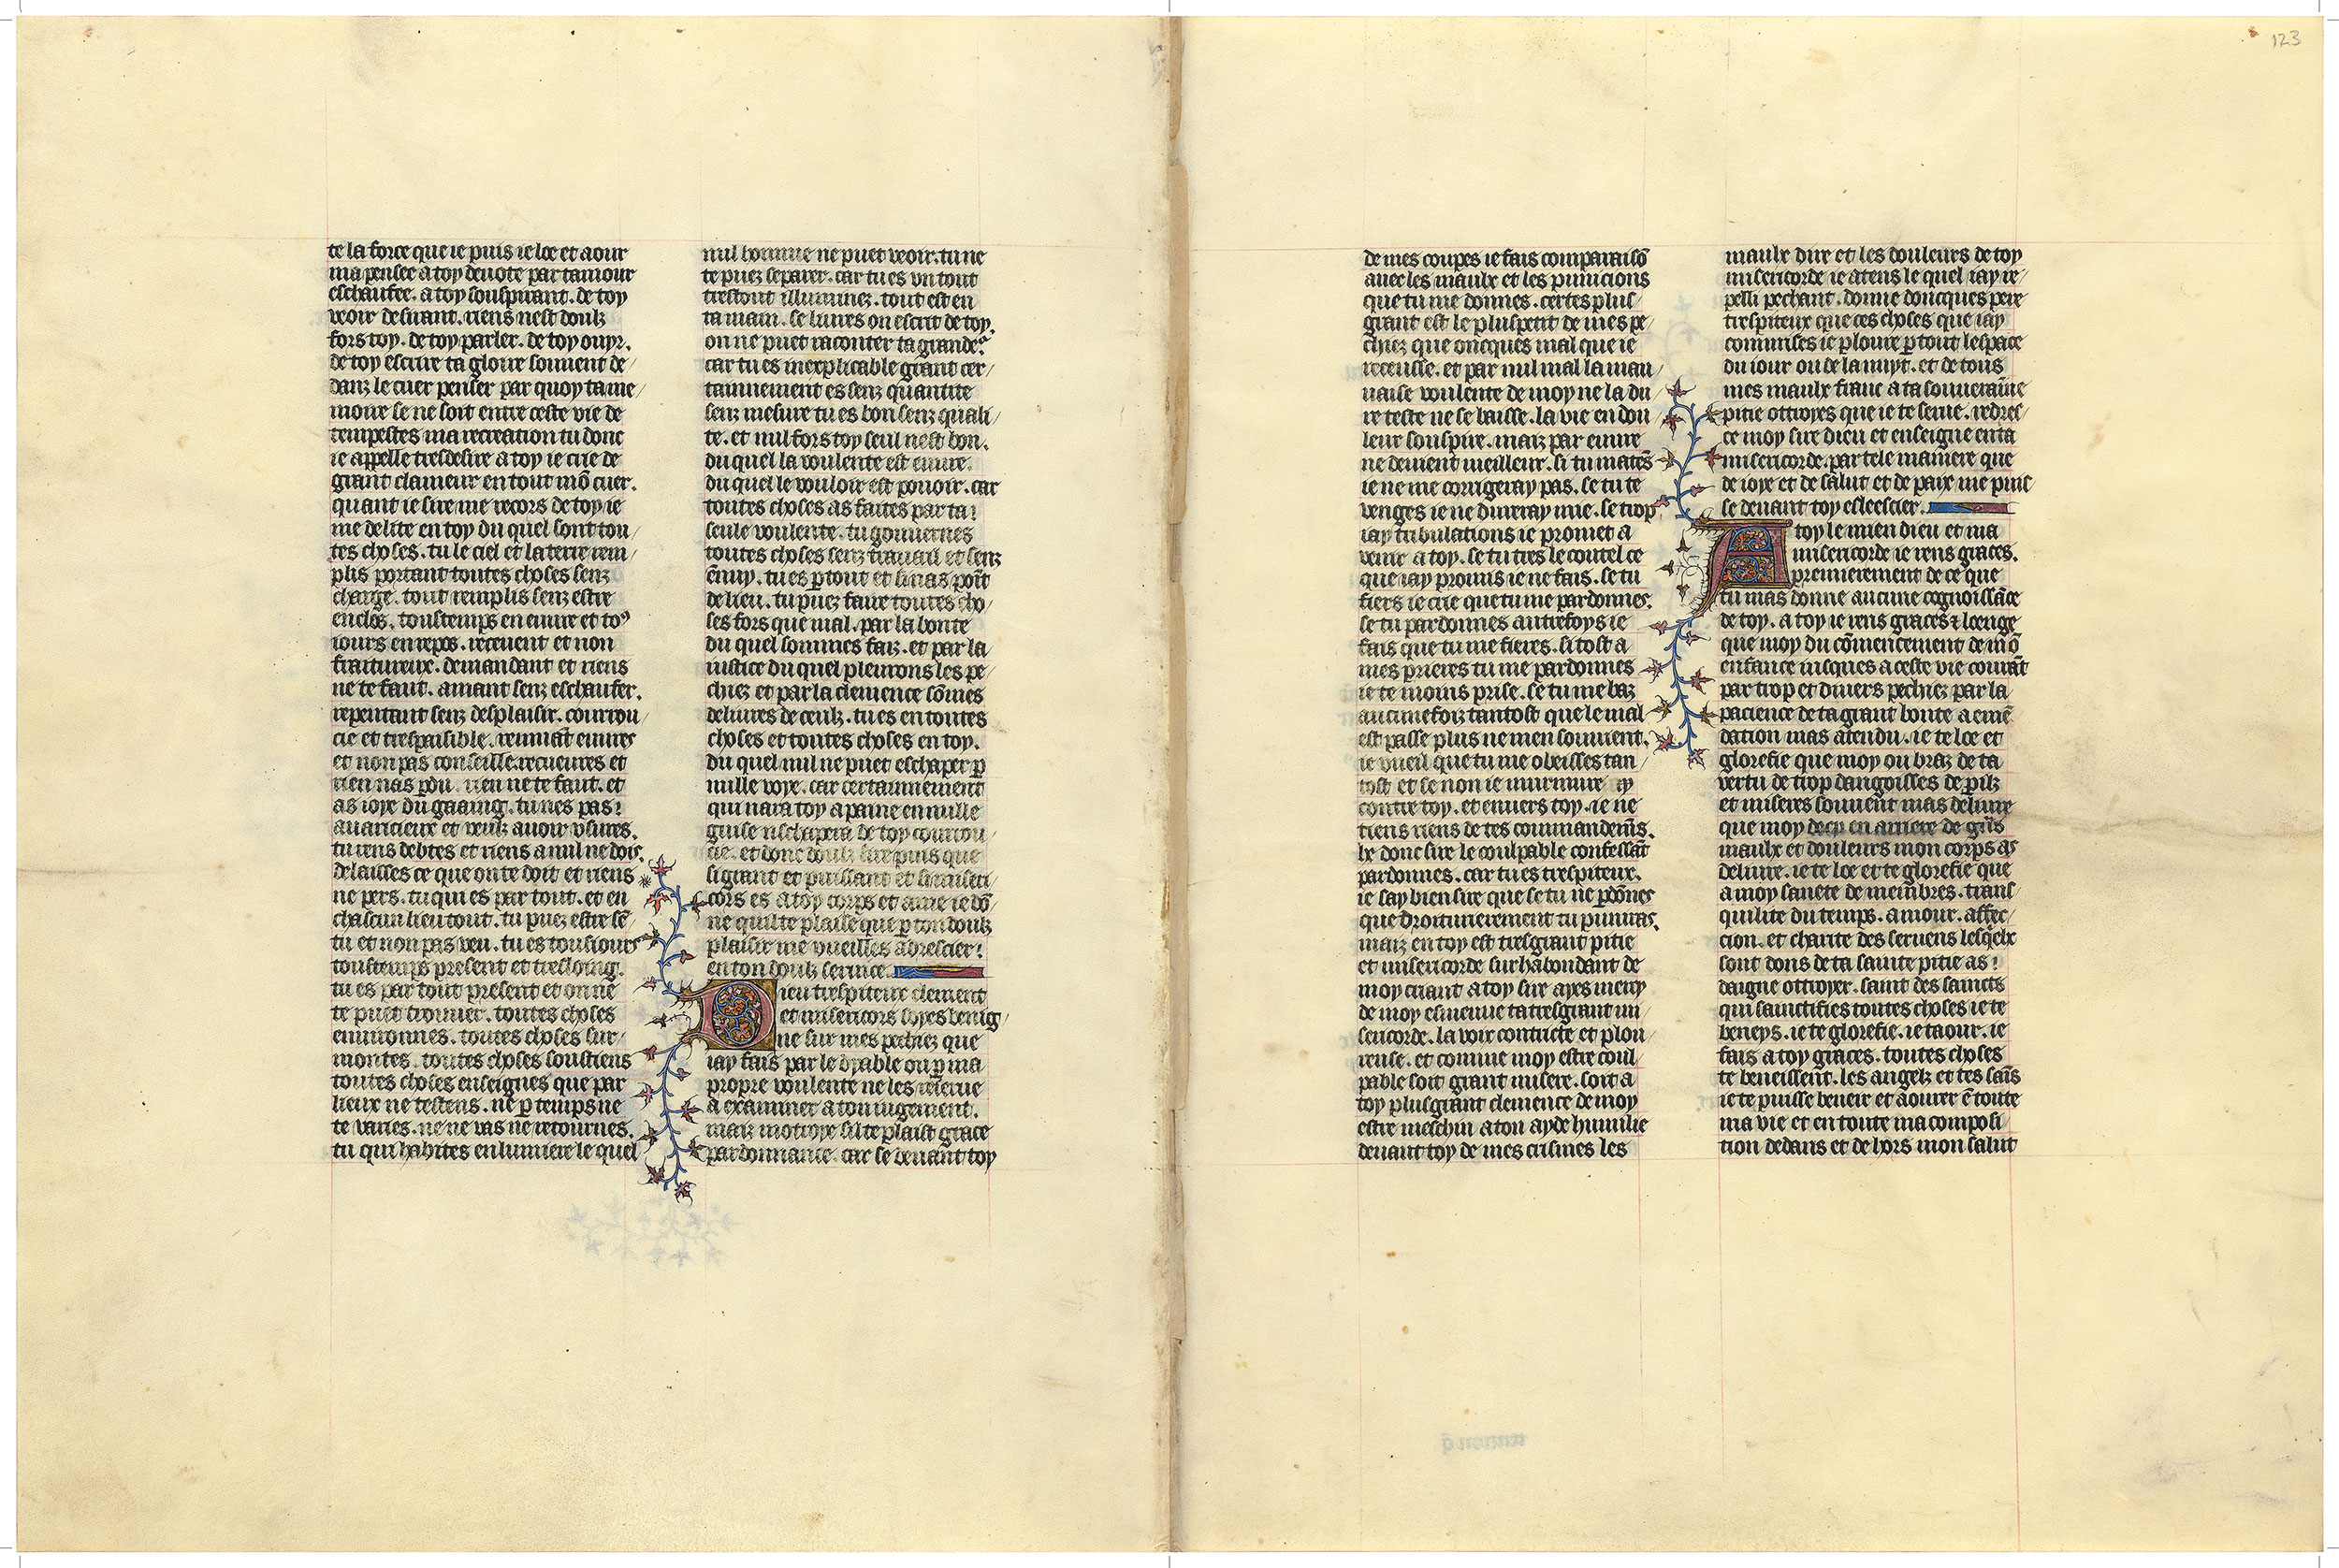 te la force que ie puis ie loe et aour
ma pensee a toy deuote par tamour
eschaufee. a toy souspirant. de toy
veoir desirant. riens nest doulz
fors toy. de toy parler. de toy ouyr.
de toy escrire ta gloire souuent de
danz le cuer penser par quoy ta me
moire se ne soit entre ceste vie de
tempestes ma recreation tu donc
ie appelle tresdesire a toy ie crie de
grant clameur en tout mõ cuer.
quant ie sire me recors de toy ie
me delite en toy du quel sont tou
tes choses. tu le ciel et la terre rem
plis portant toutes choses senz
charge. tout remplis senz estre
enclos. toustemps en euure et to⁹
iours en repos. receuent et non
fraitureux. demandant et riens
ne te faut. amant senz eschaufer.
repentant senz desplaisir. courrou
cie et trespaisible. remuãt euures
et non pas conseille. recueures et
rien nas pdu. rien ne te faut. et
as ioye du gaaing. tu nes pas
auaricieux et veulz auoir vsures.
tu rens debtes et riens a nul ne dois.
delaisses ce que on te doit et riens
ne pers. tu qui es par tout. et en
chascun lieu tout. tu puez estre sẽ
tu et non pas veu. tu es tousiours
toustemps present et tresloing.
tu es par tout present et on ne
te puet trouuer. toutes choses
enuironnes. toutes choses sur
montes. toutes choses soustiens
toutes choses enseignes que par
lieux ne testens. ne p temps ne
te varies. ne ne vas ne retournes.
tu qui habites en lumiere le quel
nul homme ne puet veoir. tu ne
te puez separer. car tu es vn tout
trestout illuminez. tout est en
ta main. se liures on escrit de toy.
on ne puet raconter ta grandeʳ.
car tu es inexplicable grant cer
tainnement es senz quantite
senz mesure tu es bon senz quali
te. et nul fors toy seul nest bon.
du quel la voulente est euure.
du quel le vouloir est pouoir. car
toutes choses as faites par ta
seule voulente. tu gouuernes
toutes choses senz trauail et senz
ẽnuy. tu es ptout et si nas poĩt
de lieu. tu puez faire toutes cho
ses fors que mal. par la bonte
du quel sommes faiz. et par la
iustice du quel pleurons les pe
chiez et par la clemence sõmes
deliures de ceulz. tu es en toutes
choses et toutes choses en toy.
du quel nul ne puet eschaper p
nulle voye. car certainnement
qui nara toy apaisie en nulle
guise neschapera de toy courrou
cie. et donc doulz sire puis que
si grant et puissant et si miseri
cors es a toy corps et ame ie dõ
ne quil te plaise que p ton doulz
plaisir me vueilles adrescier
en ton doulz seruice.
Dieu trespiteux clement
et misericors soyes benig
ne sur mes pechiez que
iay fais par le dyable ou p ma
propre voulente ne les reserue
a examiner a ton iugement.
maiz motroye sil te plaist grace
pardonnance. car se deuant toy
de mes coupes ie fais comparaisõ
auec les maulx et les punicions
que tu me donnes. certes plus
grant est le plus petit de mes pe
chiez que oncques mal que ie
receusse. et par nul mal la mau
uaise voulente de moy ne la du
re teste ne se baisse. la vie en dou
leur souspire. maiz par euure
ne deuient meilleur. si tu matẽs
ie ne me corrigeray pas. se tu te
venges ie ne dureray mie. se trop
iay tribulations ie promet a
venir a toy. se tu tres le coutel ce
que iay promis ie ne fais. se tu
fiers ie crie que tu me pardonnes.
se tu pardonnes autrefoys ie
fais que tu me fieres. si tost a
mes prieres tu me pardonnes
ie te moins prise. se tu me baz
aucune foiz tantost que le mal
est passe plus ne men souuient.
ie vueil que tu me obeisses tan
tost et se non ie murmure
contre toy. et enuers toy. ie ne
tiens riens de tes commandemẽs.
he donc sire le coulpable confessãt
pardonnes. car tu es trespiteux.
ie say bien sire que se tu ne pdõnes
que droiturierement tu puniras.
maiz en toy est tresgrant pitie
et misericorde surhabondant de
moy criant a toy sire ayes mercy
de moy esmeuue ta tresgrant mi
sericorde. la voix contricte et plou
reuse. et comme moy estre coul
pable soit grant misere. soit a
toy plus grant clemence de moy
estre meschin a ton ayde humilie
deuant toy de mes crismes les
maulx dire et les douleurs de toy
misericorde ie atens le quel iay ie
pelli pechant. donne doncques pere
trespiteux que ces choses que iay
comises ie ploure p tout lespace
du iour ou de la nuyt. et de tous
mes maulx franc a ta souueraine
pitie ottroyes que ie te serue. redres
ce moy sire dieu et enseigne en ta
misericorde. par tele maniere que
de ioye et de salut et de paix me puis
se deuant toy esleescier.
A toy le mien dieu et ma
misericorde ie rens graces.
premierement de ce que
tu mas donne aucune cognoissãce
de toy. a toy ie rens graces ⁊ loenge
que moy du cõmencement de mõ
enfance iusques a ceste vie courãt
par trop et diuers pechiez par la
pacience de ta grant bonte a emẽ
dation mas atendu. ie te loe et
glorefie que moy ou braz de ta
vertu de trop dangoisses de pilz
et miseres souuent mas deliure
que moy en arriere de
maulx et douleurs mon corps as
deliure. ie te loe et te glorefie que
a moy sanete de membres. trans
quilite du temps. amour. affec
cion. et charite des seruens lesqelx
sont dons de ta sainte pitie as
daigne ottroyer. saint des saincts
qui sanctifies toutes choses ie te
beneys. ie te glorefie. ie taour. ie
fais a toy graces. toutes choses
te beneissent. les angelz et tes saĩs
ie te puisse beneir et aourer ẽ toute
ma vie et en toute ma composi
tion dedans et de hors mon salut
123